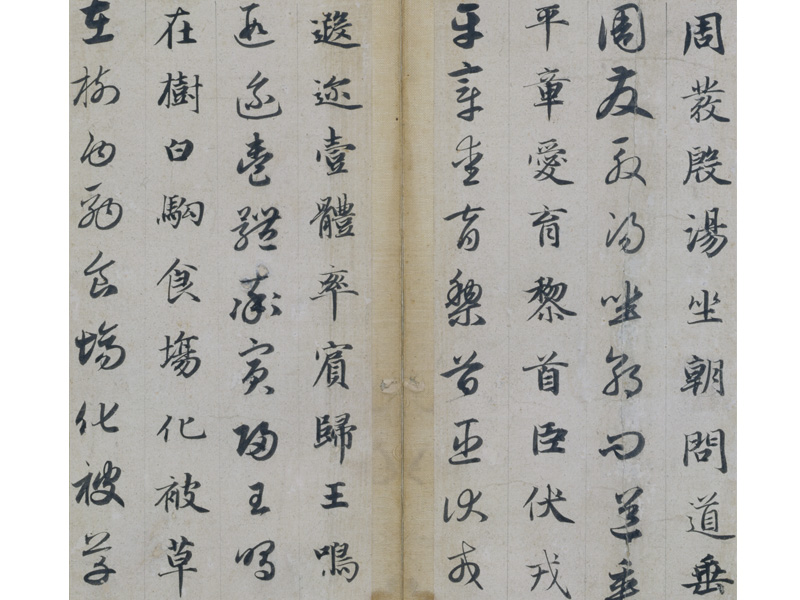 周發殷湯坐朝問道垂
周發殷湯坐朝問道垂
平章愛育黎首臣伏戎
平章愛育黎首臣伏戎
遐迩壹體率賓歸王鳴
遐迩壹體率賓歸王鳴
在樹白駒食塲化被草
在樹白駒食塲化被草